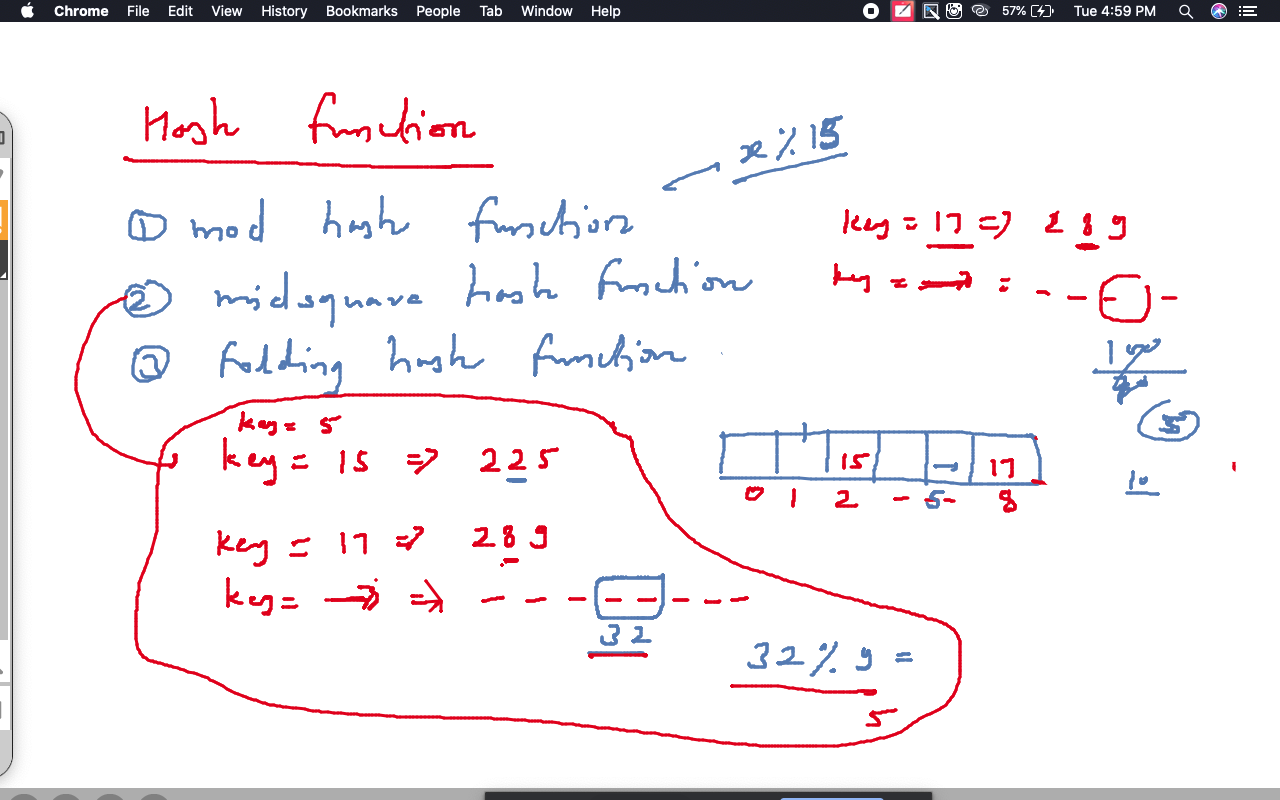 Chrome File Edit View History Bookmarks People Tab Window Help 57% Tue 4:59 PM
Hash function
x % 15
① mod hash function
② midsquare hash function
③ folding hash function
key = 17 => 289
key = → = - - - -
100
5
10
key = 5
key = 15 => 225
key = 17 => 289
key = → => - - - - - - - -
32
32 % 9 =
5
15 → 17
0 1 2 - 5 - 8